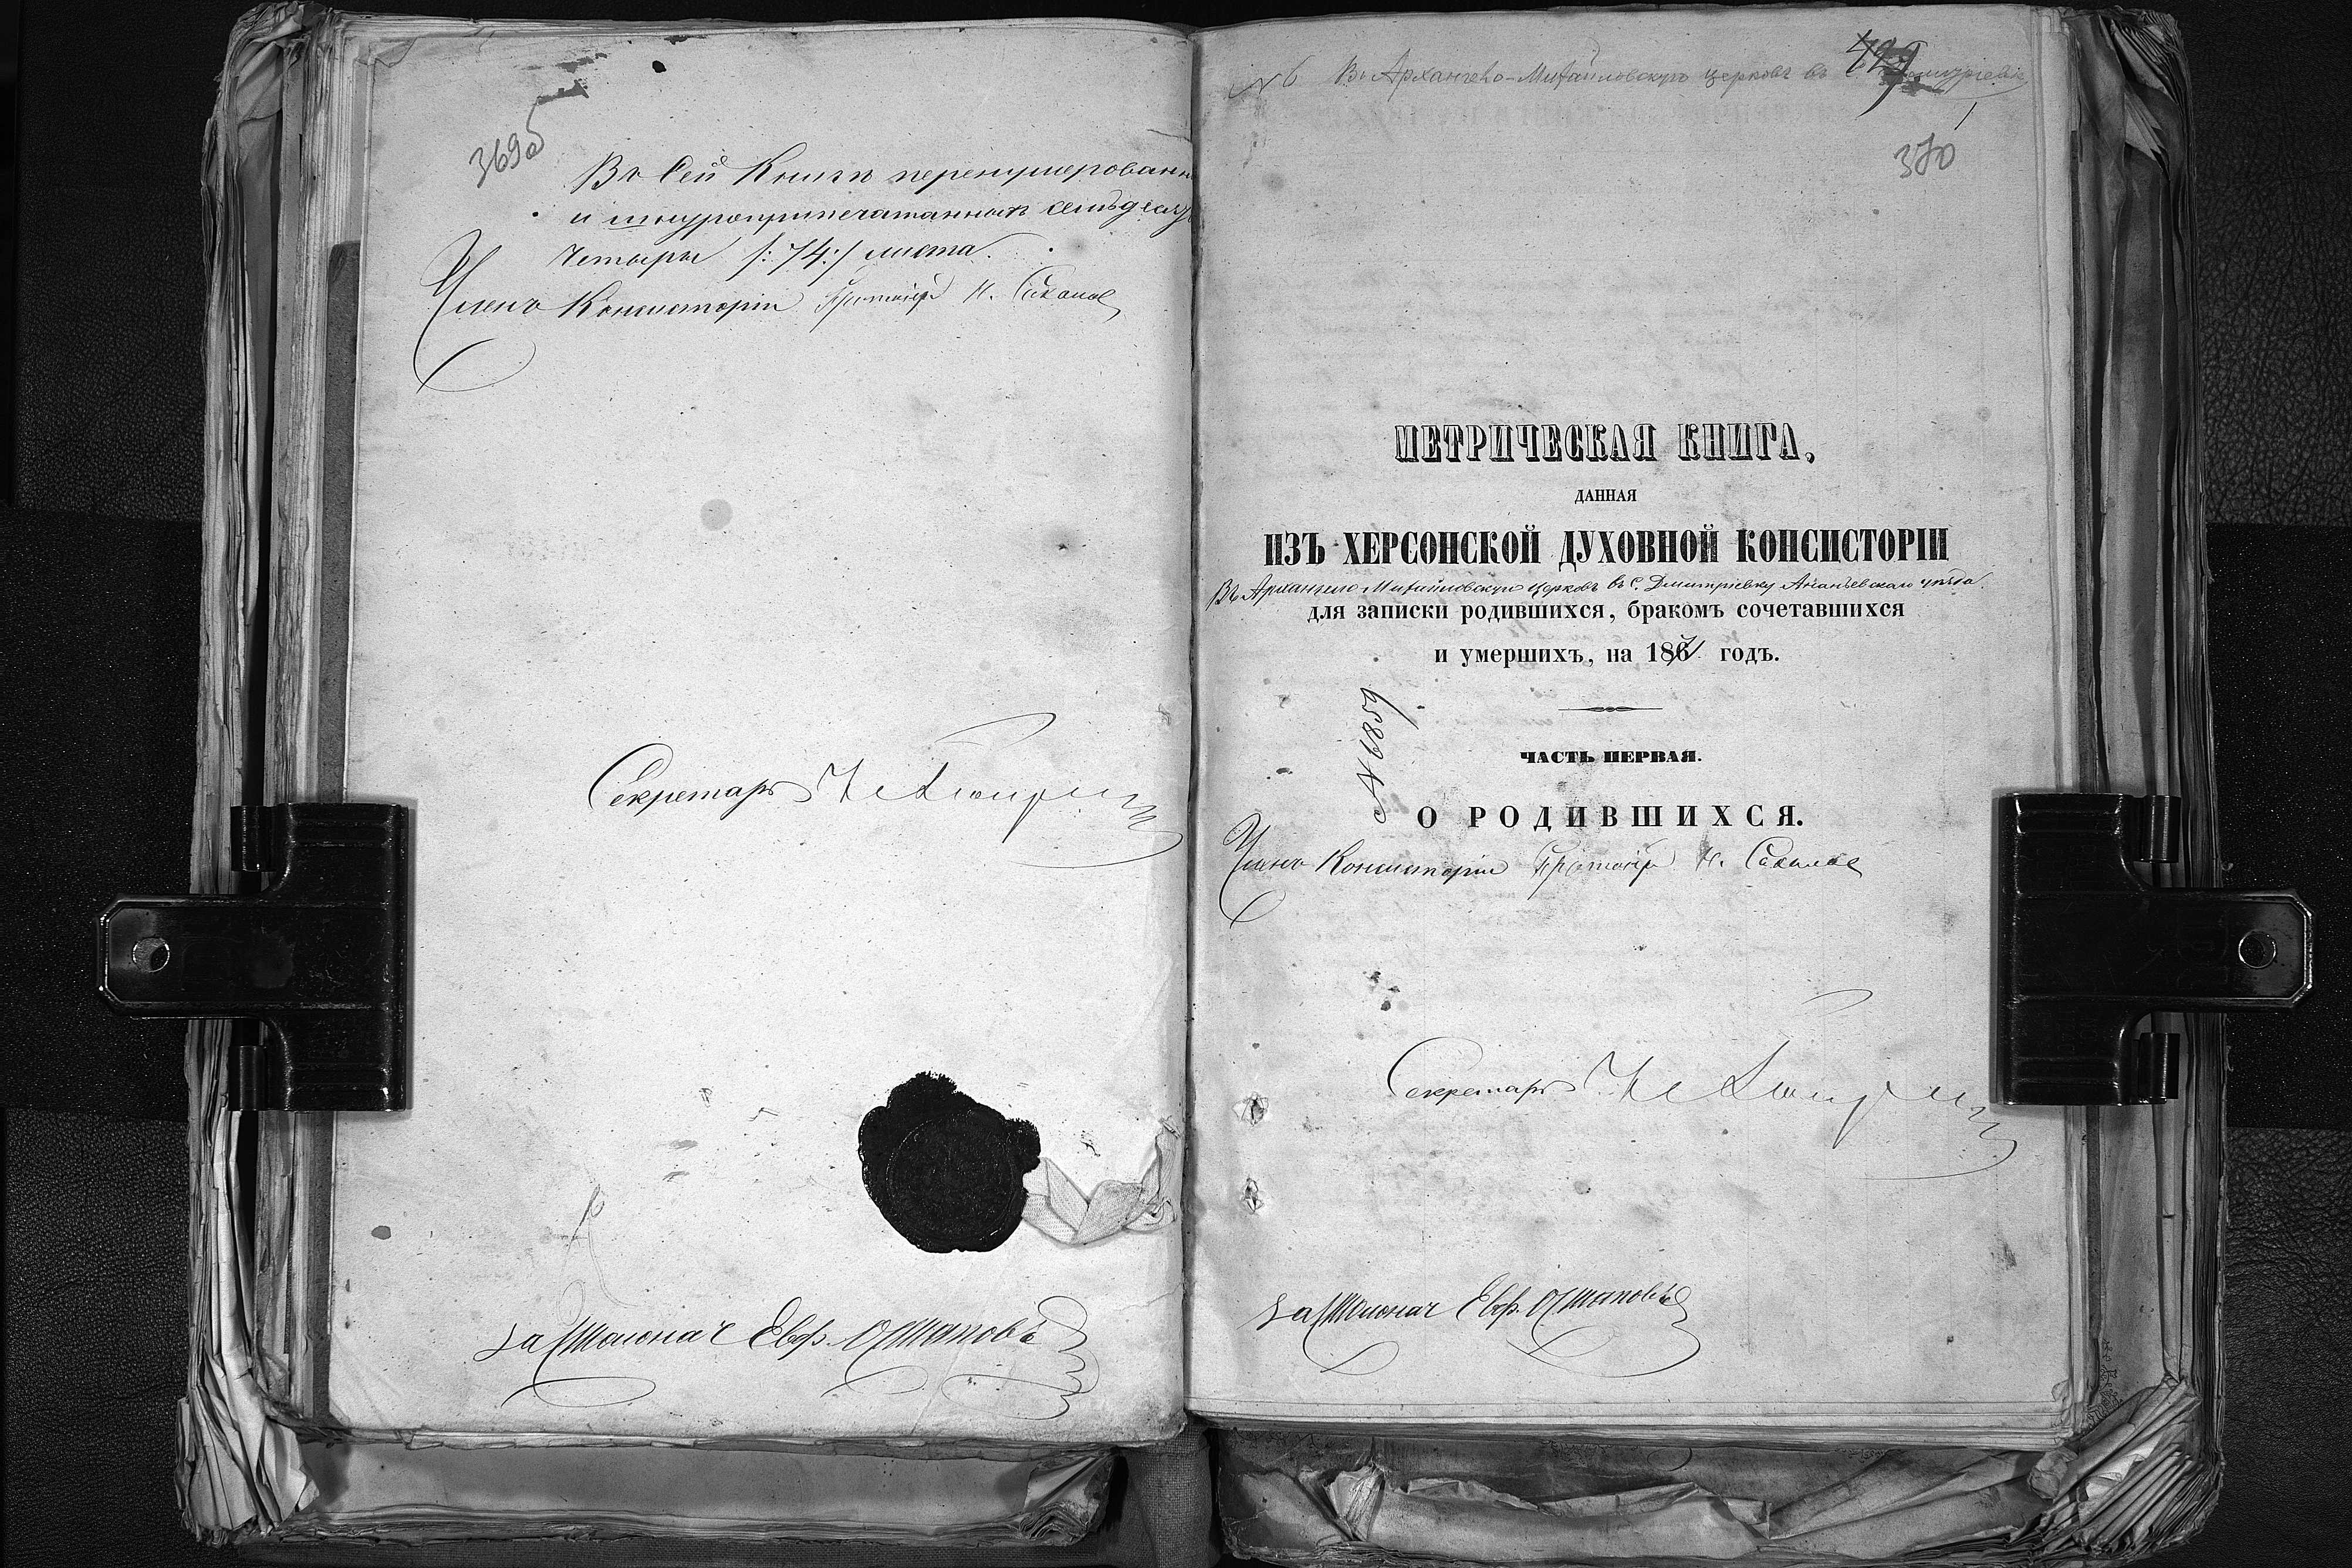 369об
Въ сей Книгѣ перенумерованн
и шнуроприпечатанныхъ семьдесят
четыре /:74:/ листа.
Членъ Консисторіи Протоіер Н. Соколов
Секретарь
За Столонач Евф. Остаповъ
№ 6 Въ Архангело-Михайловскую церковь въ
429
1
370
МЕТРИЧЕСКАЯ КНИГА,
ДАННАЯ
ИЗЪ ХЕРСОНСКОЙ ДУХОВНОЙ КОНСИСТОРІИ
Въ Архангело Михайловскую церковь въ с. Дмитріевку Ананьевскаго уѣзда
для записки родившихся, бракомъ сочетавшихся
и умершихъ, на 1871 годъ.
№ 6859
ЧАСТЬ ПЕРВАЯ.
О РОДИВШИХСЯ.
Членъ Консисторіи Протоіер Н. Соколов
Секретарь
За Столонач Евф. Остаповъ